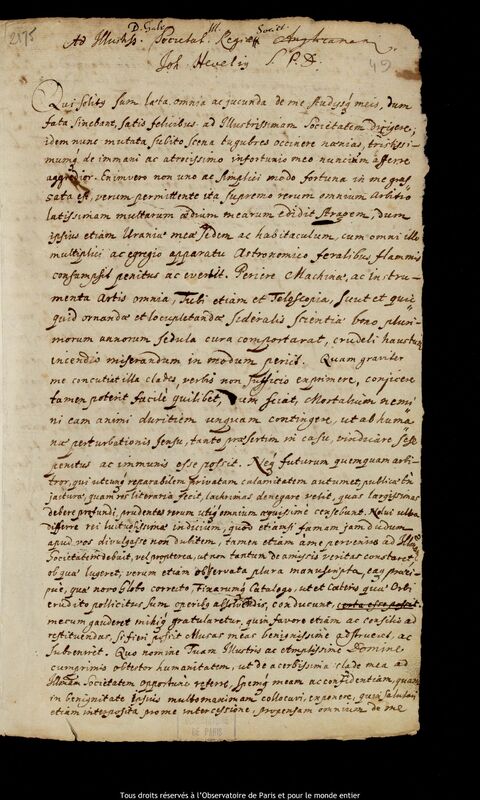 2375
D. Gale
Ad Illustriss. Societat. Regiæ Anglicanam
49
Joh Hevelij S. P. D.
Qui solitus sum læta omnia ac jucunda de me studijsq meis, dum
fata sinebant, satis felicibus ad Illustrissimam Societatem dirigere;
idem nunc mutata subito scena lugubres occinere nænias, tristissi-
mumq de immani ac atrocissimo infortunio meo nuncium afferre
aggredior. Enimvero non uno ac simplici modo fortuna in me gras
sata est, verum permittente ita supremo rerum omnium Arbitro
latissimam multarum ædium mearum edidit stragem, dum
ipsius etiam Uraniæ meæ sedem ac habitaculum, cum omni illo
multiplici ac egregio apparatu Astronomico feralibus flammis
consumpsit penitus ac evertit. Periere Machinæ, ac instru-
menta Artis omnia, Tubi etiam et Telescopia, sicut et quic
quid ornandæ et locupletandæ sideralis scientiæ bono pluri-
morum annorum sedula cura comportarat, crudeli haustum
incendio miserandum in modum perijt. Quam graviter
me concutiat illa clades, verbis non sufficio exprimere, conjicere
tamen poterit facile quilibet, dum sciat, Mortalium nemi
ni eam animi duritiem unquam contingere, ut ab huma
næ perturbationis sensu, tanto præsertim in casu, vindicare sese
penitus ac immunis esse possit. Neq futurum quemquam arbi-
tror, qui utcunq reparabilem privatam calamitatem autumet, publicæ tn
jacturæ, quam res literaria fecit, lachrimas denegare velit, quas largissimas
debere profundi, prudentes rerum utiq omnium æquissime censebunt. Nolui ultra
differre rei luctuosissimæ indicium, quod etiamsi famam jamdudum
apud vos divulgasse non dubitem, tamen etiam a me pervenire ad Illustrem
Societatem debuit, vel propterea, ut non tantum de amissis veritas constaret
ob quæ lugeret; verum etiam observata plura manuscripta, eaq præci-
pue, quæ novo globo correcto, Fixarumq Catalogo, ut et cæteris quæ Orbi
erudito pollicitus sum operibus absolvendis, conducunt, certa esse possit.
mecum gauderet mihiq gratularetur, quin favore etiam ac consilio ad
restituendas, si fieri possit Musas meas benignissime adstrueret, ac
subveniret. Quo nomine Tuam Illustris ac Amplissime Domine
cumprimis obtestor humanitatem, ut de acerbissima clade mea ad
Illustrem Societatem opportune referre, spemq meam ac confidentiam, quam
in benignitate ipsius multo maximam collocavi, exponere, quin salutari
etiam interposita pro me intercessione, propensam omnium de me
DE PARIS
Tous droits réservés à l'Observatoire de Paris et pour le monde entier